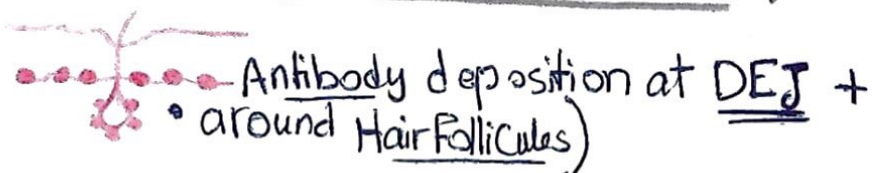 Antibody deposition at DEJ +
• around Hair Follicules)